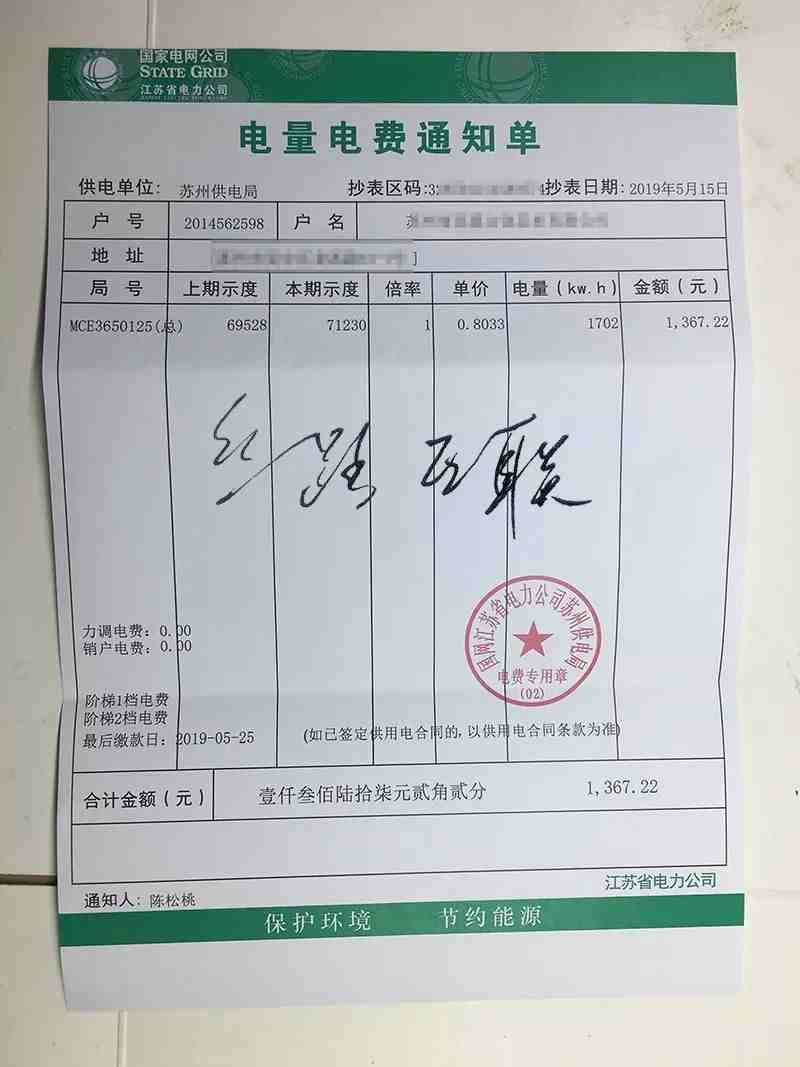 国家电网公司
STATE GRID
江苏省电力公司
电量电费通知单
供电单位: 苏州供电局 抄表区码:3 4 抄表日期: 2019年5月15日
户 号 2014562598 户 名
地 址
局 号 上期示度 本期示度 倍率 单价 电量(kw.h) 金额(元)
MCE3650125(总) 69528 71230 1 0.8033 1702 1,367.22
丝路互联
国网江苏省电力公司苏州供电局
电费专用章
(02)
力调电费: 0.00
销户电费: 0.00
阶梯1档电费
阶梯2档电费
最后缴款日: 2019-05-25 (如已签定供用电合同的, 以供用电合同条款为准)
合计金额(元) 壹仟叁佰陆拾柒元贰角贰分 1,367.22
江苏省电力公司
通知人: 陈松桃
保护环境 节约能源